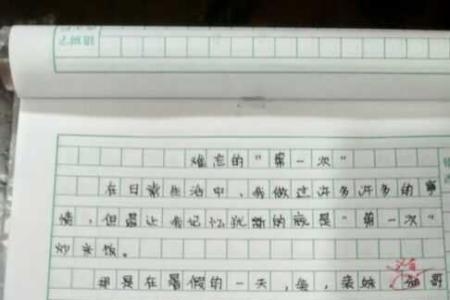 难忘的“第一次”
在日常生活中，我做过许多许多的事
情，但最让我记忆犹新的就是“第一次”
炒米饭。
那是在暑假的一天，爸，表妹
哥